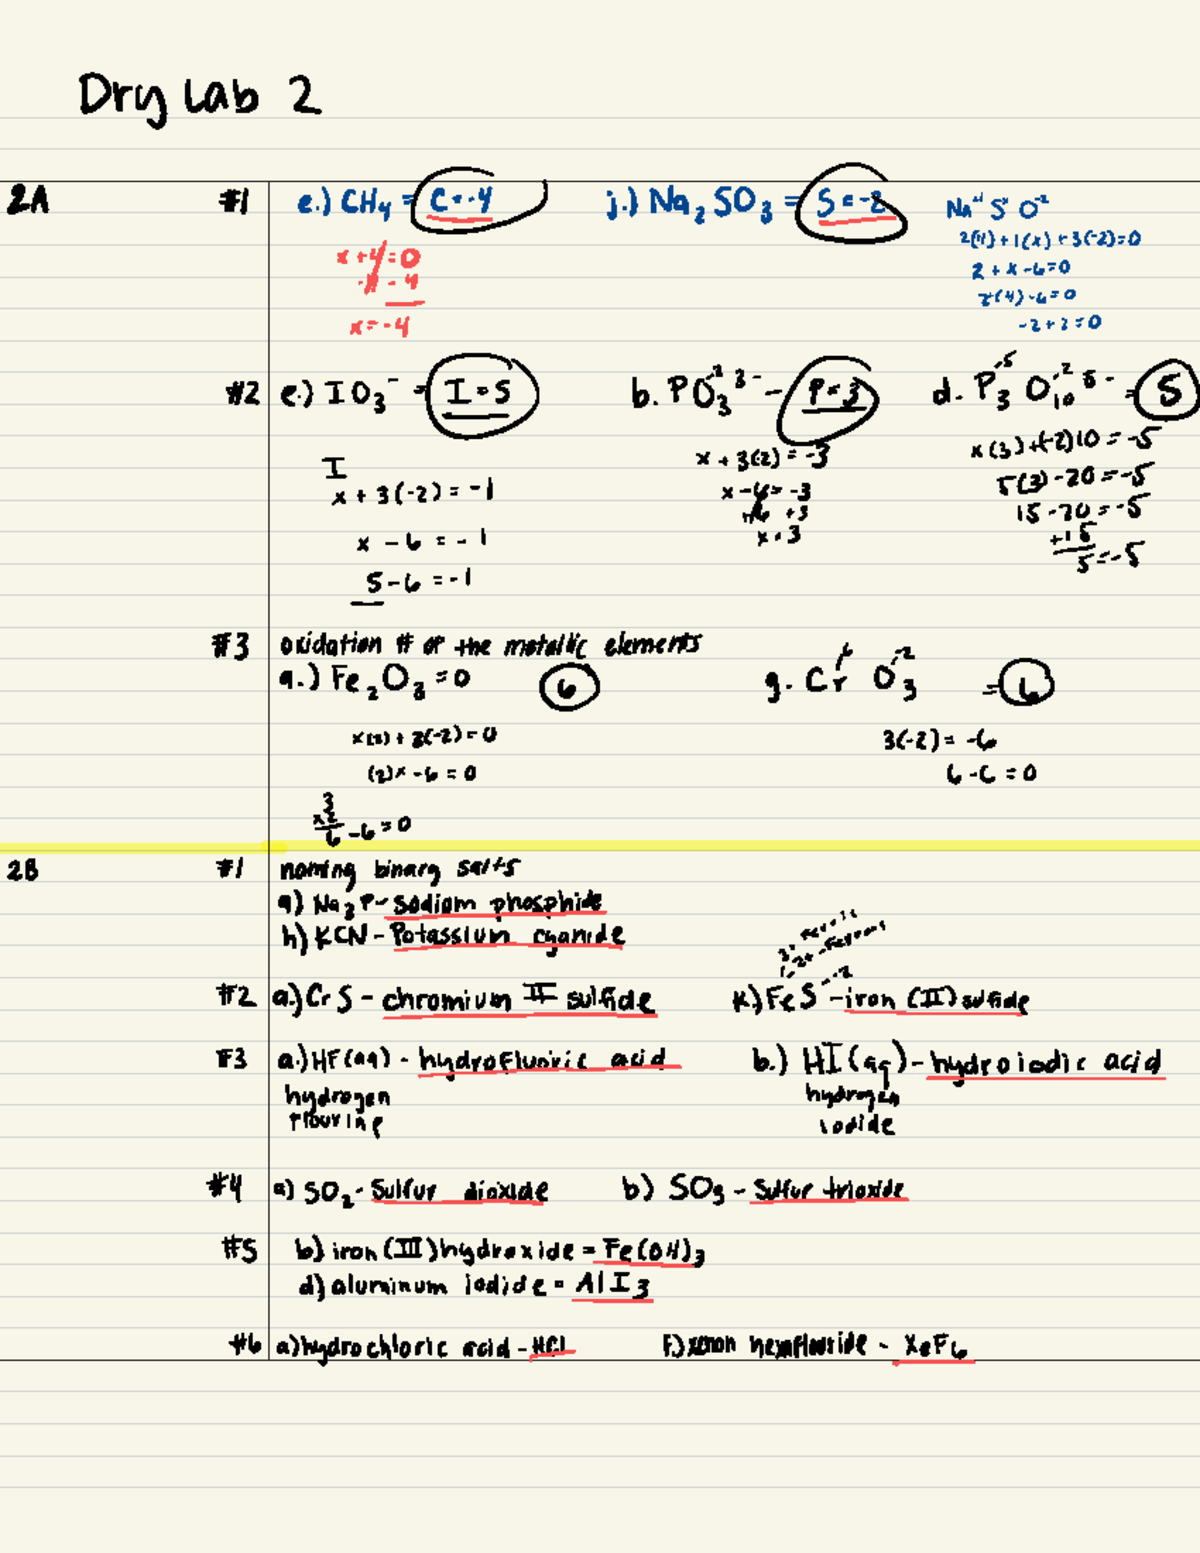 Dry Lab 2
2A #1 e.) CH4 = C = -4 j.) Na2SO3 = S = -2 Na+1 S O-2
x + 4 = 0 2(+1) + 1(x) + 3(-2) = 0
-4 - 4 2 + x - 6 = 0
x = -4 2(4) - 6 = 0
-2 + 2 = 0
#2 e.) IO3- = I = 5 b. PO3-2 3- - P = 3 d. P3-5 O10-2 5- = 5
I x + 3(-2) = -3 x(3) + (-2)10 = -5
x + 3(-2) = -1 x - 6 = -3 5(3) - 20 = -5
+6 +3 15 - 20 = -5
x - 6 = -1 x = 3 +15
5 - 6 = -1 5 = -5
#3 oxidation # of the metallic elements
a.) Fe2O3 = 0 6 g. Cr6 O3-2 = 6
x(2) + 3(-2) = 0 3(-2) = -6
(2)x - 6 = 0 6 - 6 = 0
3
x2
6 - 6 = 0
2B #1 naming binary salts
a) Na3P - sodium phosphide
h) KCN - Potassium cyanide
#2 a.) CrS - chromium II sulfide k.) FeS-2 - iron (II) sulfide
#3 a.) HF(aq) - hydrofluoric acid b.) HI(aq) - hydroiodic acid
hydrogen hydrogen
flourine iodide
#4 a) SO2 - Sulfur dioxide b) SO3 - Sulfur trioxide
#5 b) iron (III) hydroxide = Fe(OH)3
d) aluminum iodide = AlI3
#6 a) hydrochloric acid - HCl F.) xenon hexaflouride - XeF6